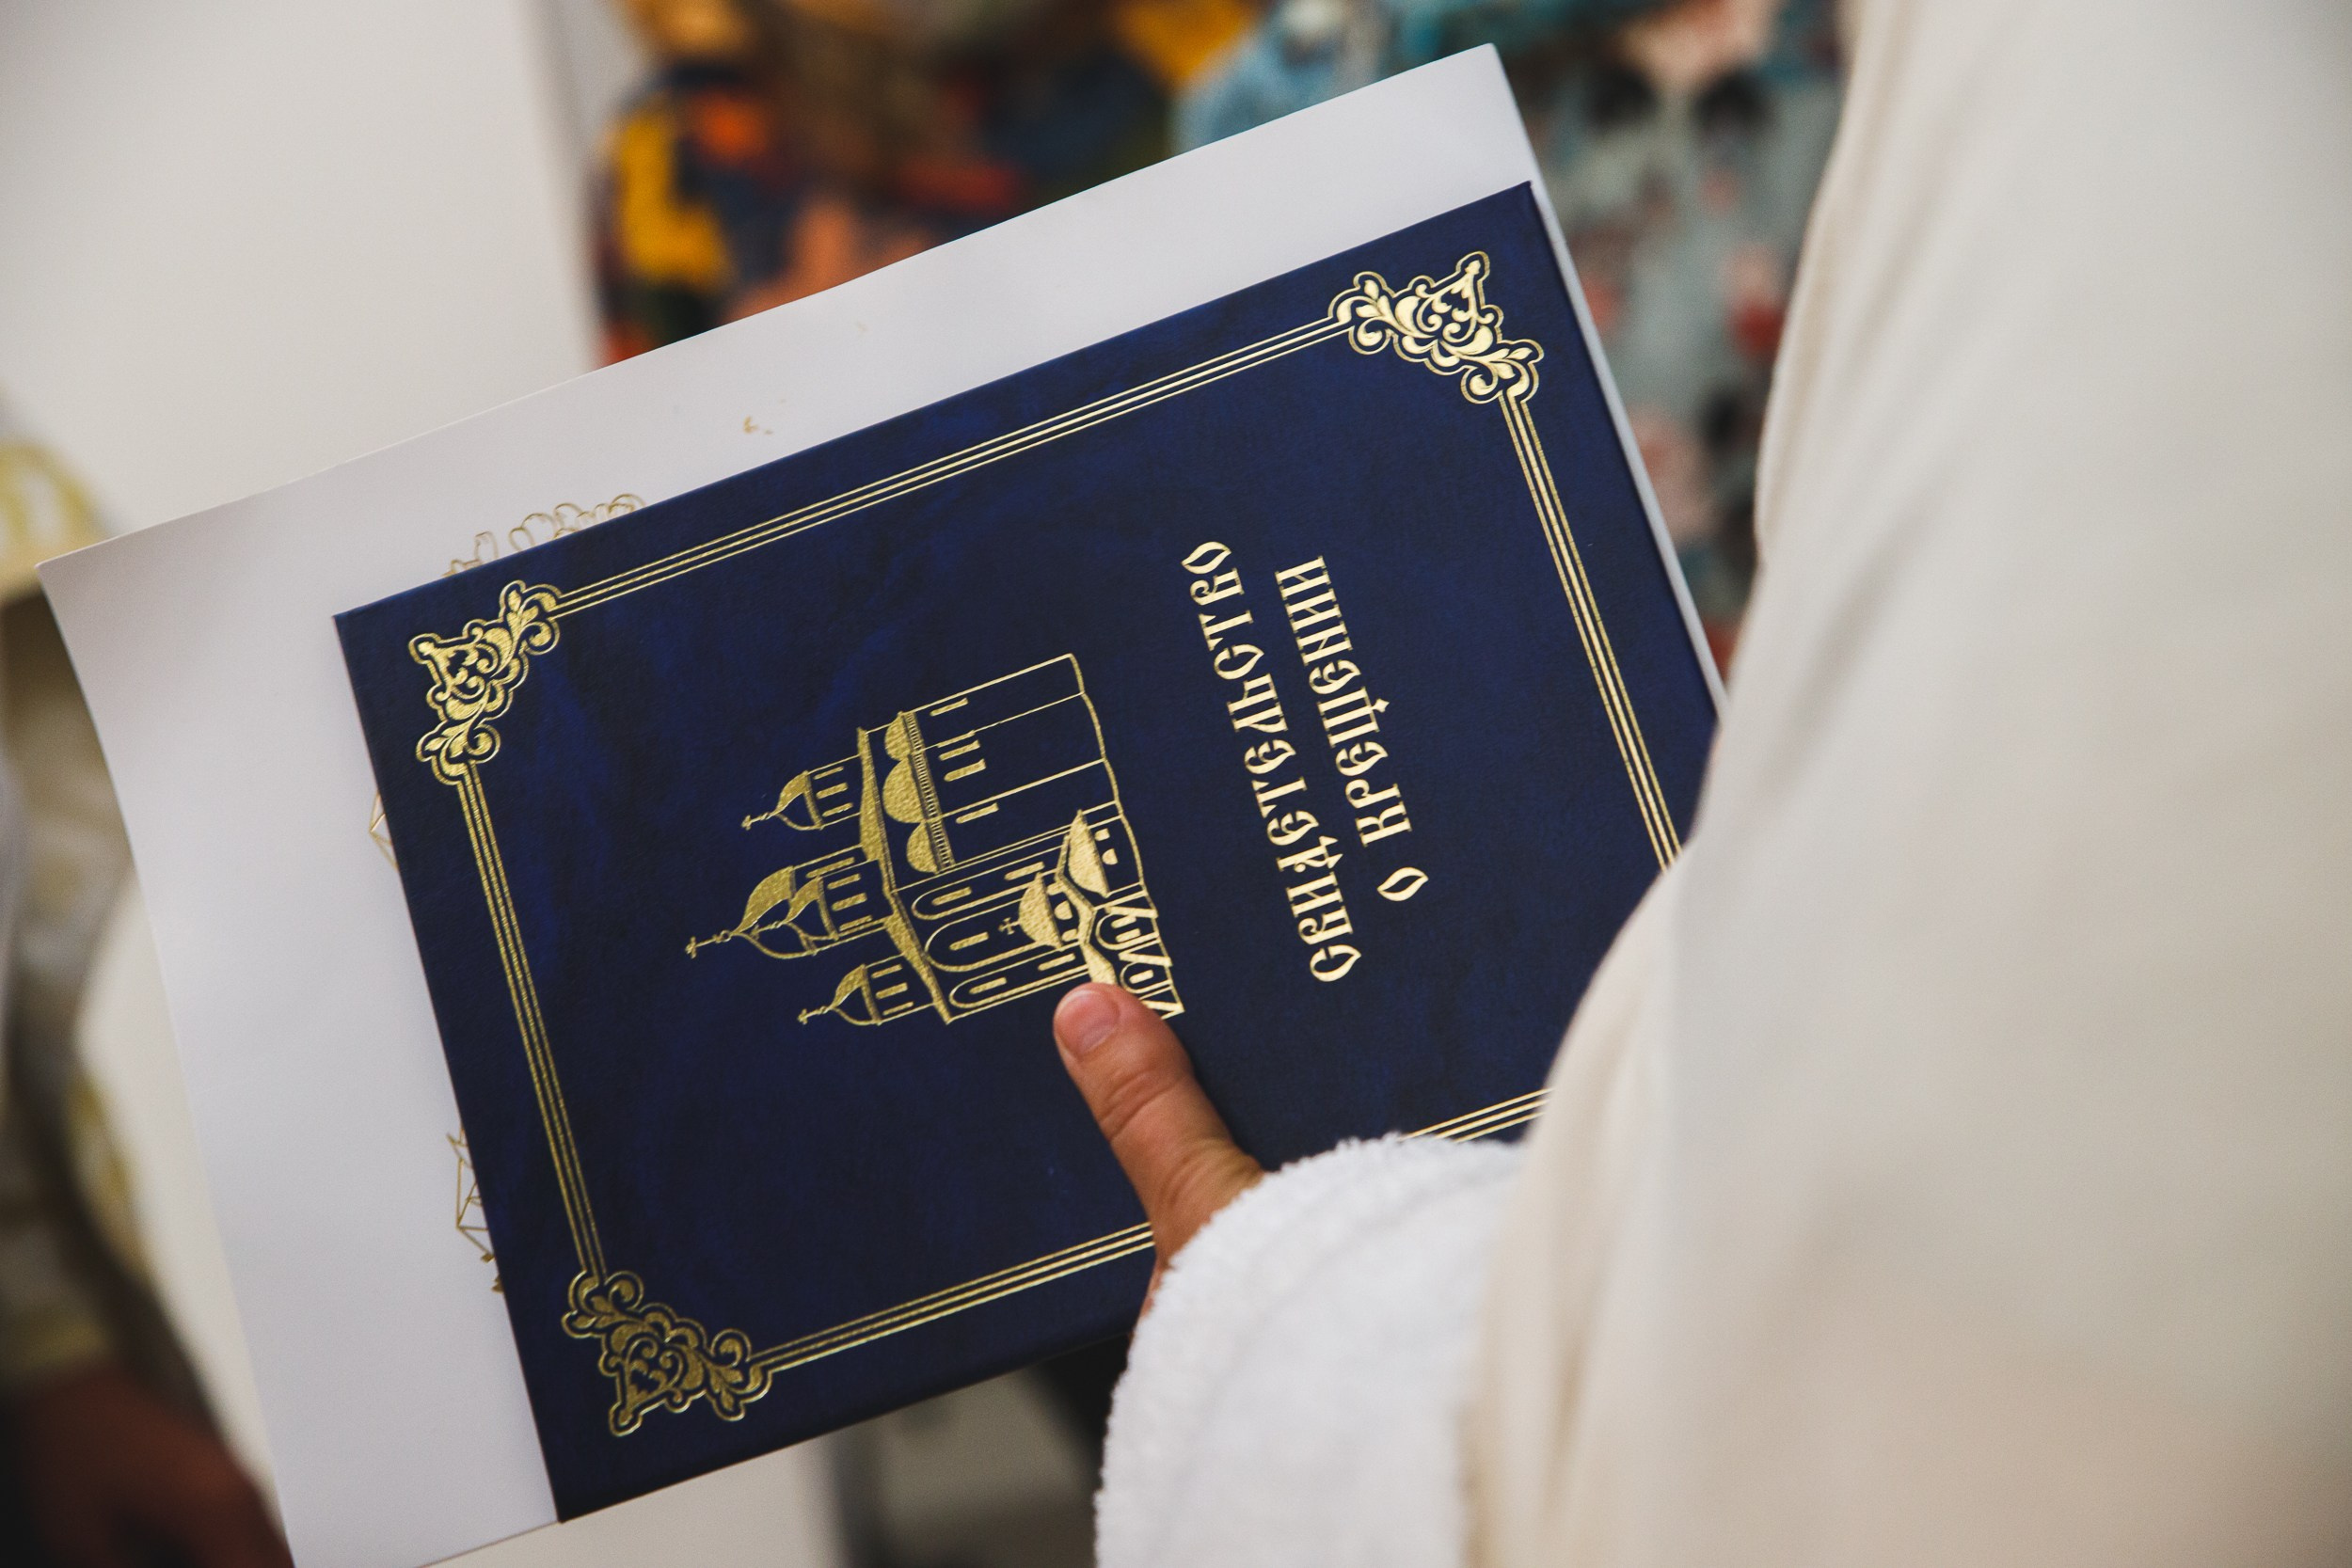 СВИДЕТЕЛЬСТВО
О КРЕЩЕНИИ